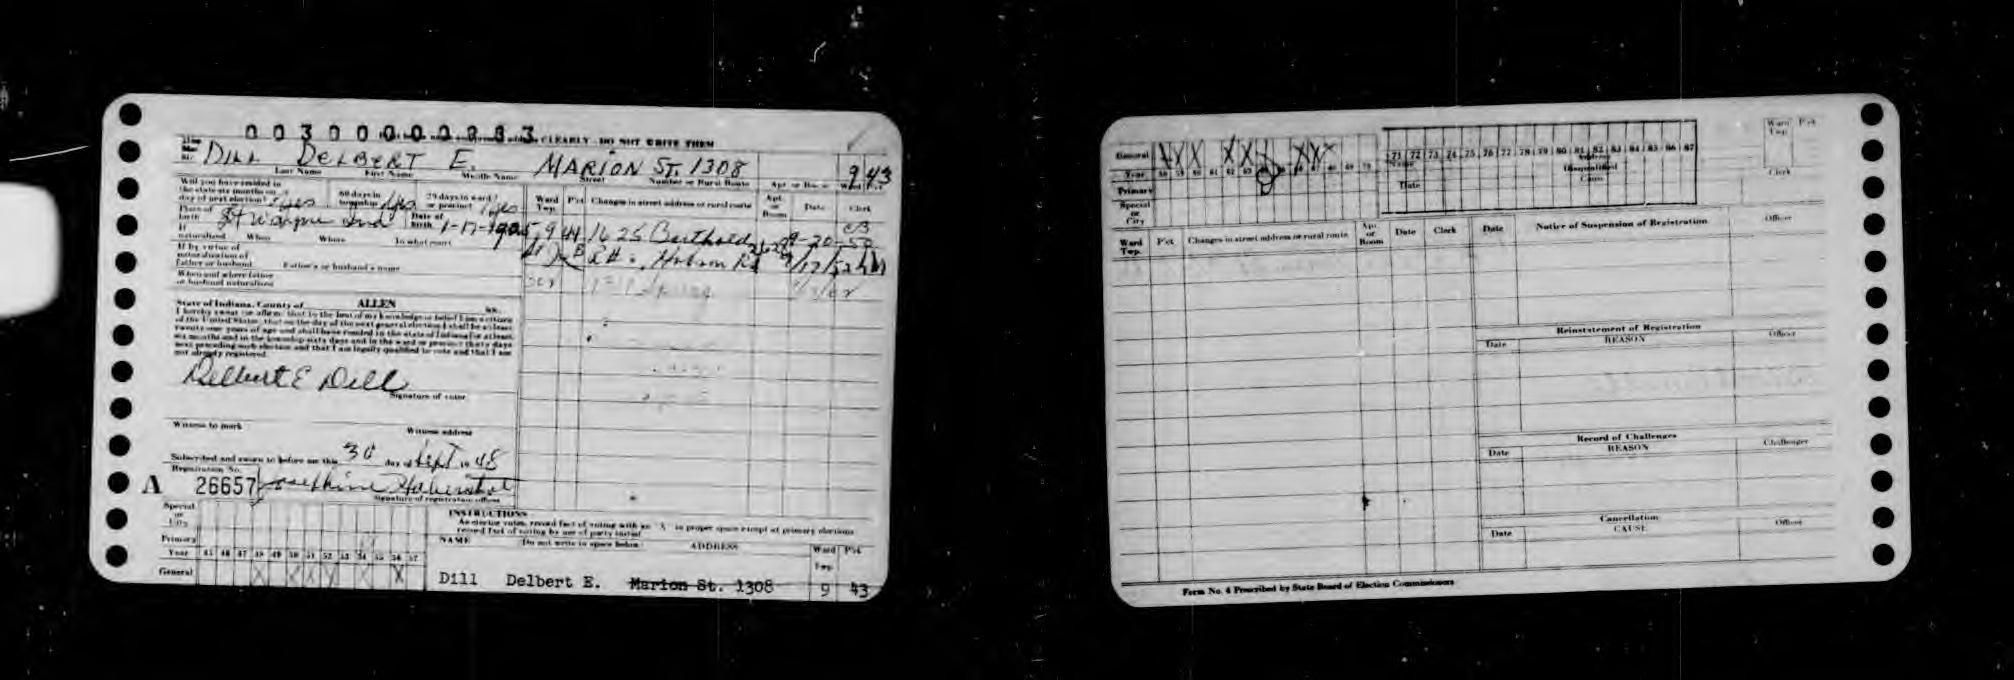 003000000283 CLEARLY - DO NOT WRITE THEM
DILL DELBERT E. MARION ST. 1308 9 43
Last Name First Name Middle Name Street Number or Rural Route Apt. or Room Ward Pct.
Will you have resided in the state six months on day of next election? Yes 60 days in township Yes 29 days in ward or precinct? Yes
Ward Twp. Pct. Changes in street address or rural route Apt. or Room Date Clerk
Place of birth Ft Wayne Ind Date of birth 1-17-1905
9 44 1625 Berthold 9-20-50
If naturalized When Where In what court
Hobson Rd 9/17/52
If by virtue of naturalization of Father or husband Father's or husband's name
When and where father or husband naturalized
State of Indiana, County of ALLEN ss.
I hereby swear (or affirm) that to the best of my knowledge or belief I am a citizen
of the United States; that on the day of the next general election I shall be at least
twenty-one years of age and shall have resided in the state of Indiana for at least
six months and in the township sixty days and in the ward or precinct thirty days
next preceding such election and that I am legally qualified to vote and that I am
not already registered.
Delbert E Dill
Signature of voter
Witness to mark Witness address
Subscribed and sworn to before me this 30 day of Sept 1948
Registration No.
A 26657 Josephine
Signature of registration officer
Special or City
Primary
Year 45 46 47 48 49 50 51 52 53 54 55 56 57
General X X X X X X
INSTRUCTIONS
As elector votes, record fact of voting with an "X" in proper space except at primary elections
record fact of voting by use of party initial
NAME (Do not write in space below) ADDRESS Ward Twp. Pct.
Dill Delbert E. Marion St. 1308 9 43
General X X X X X X X
Year 58 59 60 61 62 63 66 67 68 69 70
Primary
Special or City
71 72 73 74 75 76 77 78 79 80 81 82 83 84 85 86 87
Name Address
Disqualified
Date Cause
Ward Twp. Pct.
Clerk
Ward Twp. Pct. Changes in street address or rural route Apt. or Room Date Clerk
Date Notice of Suspension of Registration Officer
Reinstatement of Registration
Date REASON Officer
Record of Challenges
Date REASON Challenger
Cancellation
Date CAUSE Officer
Form No. 4 Prescribed by State Board of Election Commissioners